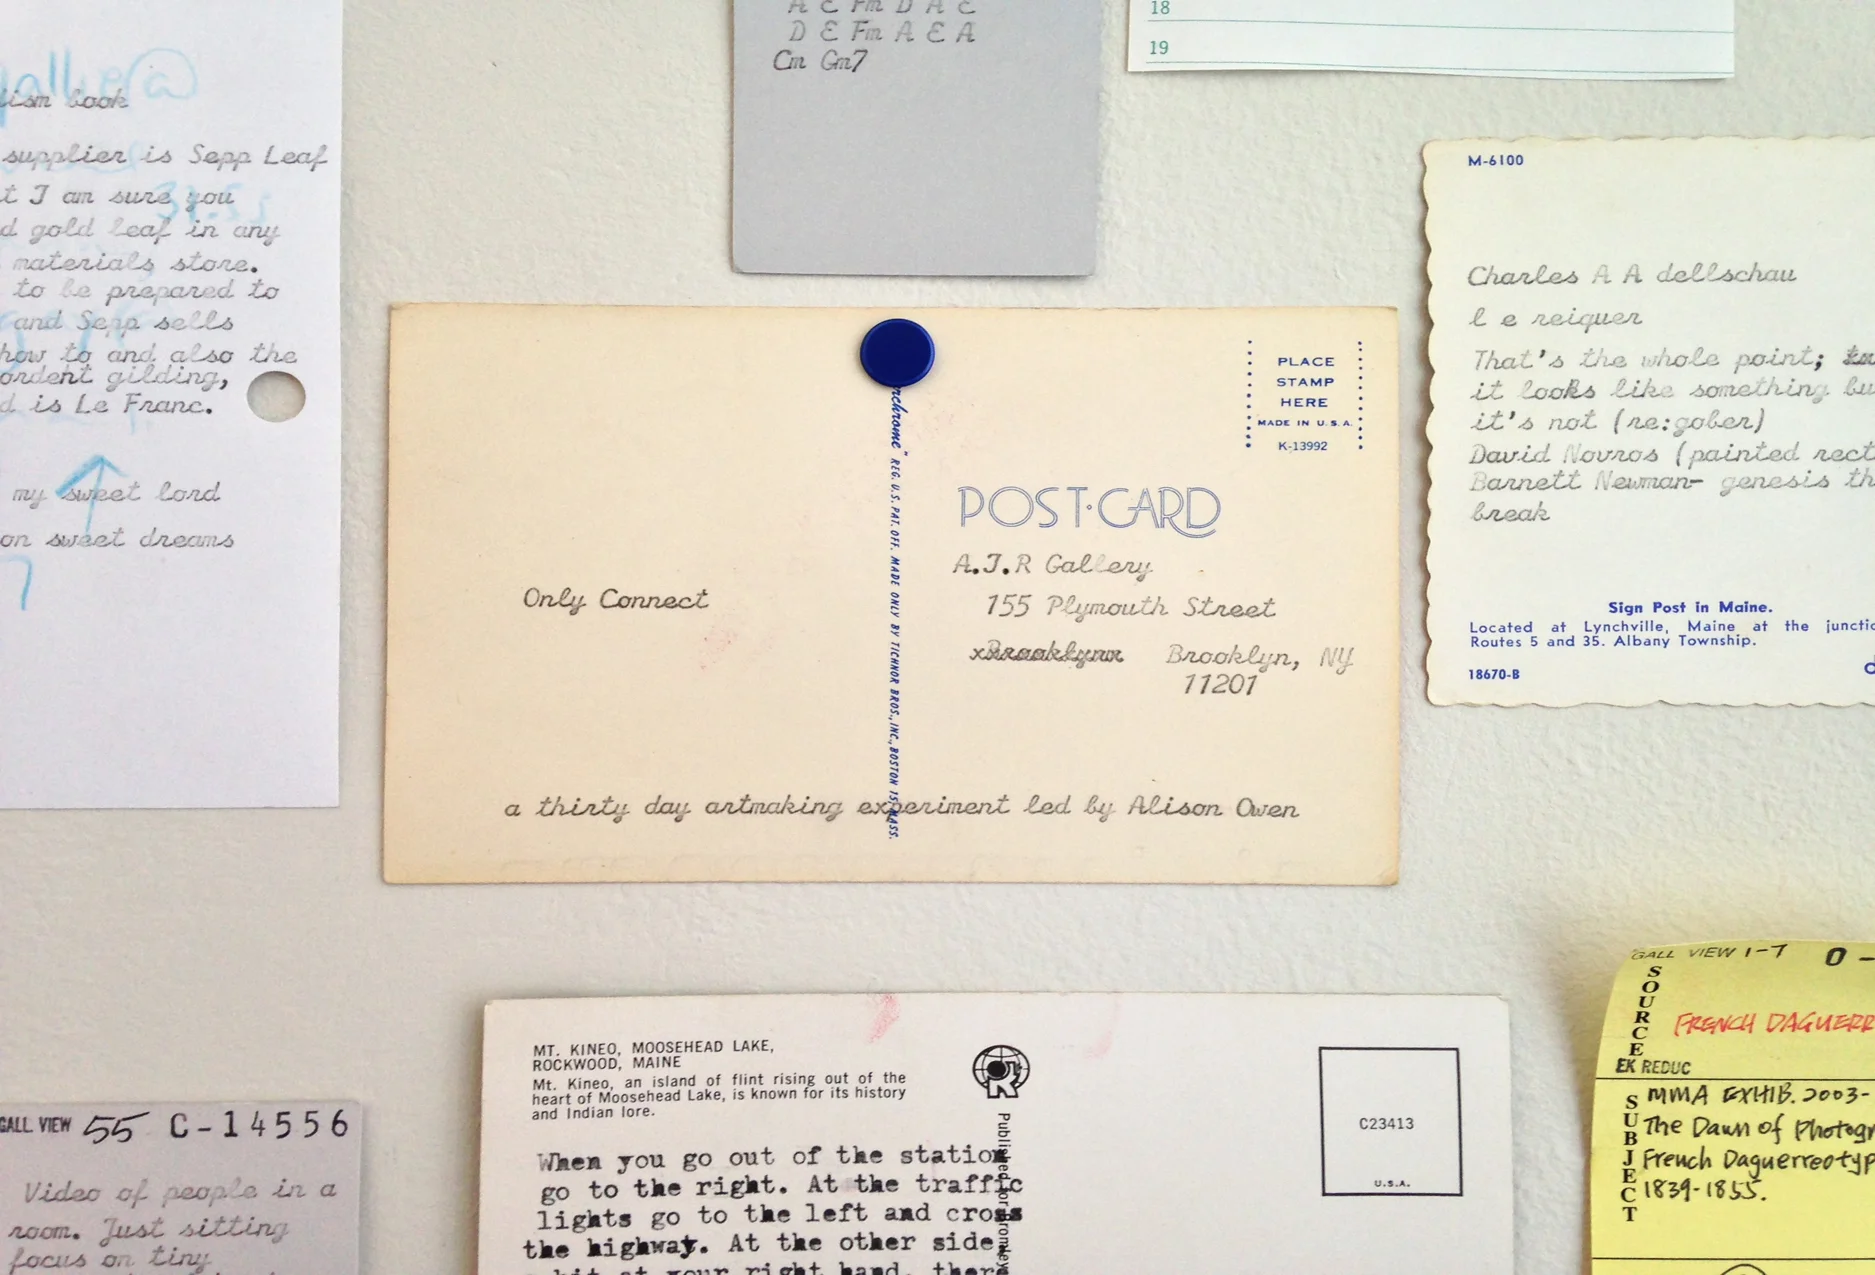 A E Fm D A E
D E Fm A E A
Cm Gm7
18
19
lism book
supplier is Sepp Leaf
t I am sure you
d gold leaf in any
materials store.
to be prepared to
and Sepp sells
how to and also the
ordent gilding,
d is Le Franc.
my sweet lord
on sweet dreams
M-6100
Charles A A dellschau
l e reiquer
That's the whole point;
it looks like something bu
it's not (re:gober)
David Novros (painted rect
Barnett Newman- genesis th
break
Sign Post in Maine.
Located at Lynchville, Maine at the juncti
Routes 5 and 35. Albany Township.
18670-B
PLACE
STAMP
HERE
MADE IN U.S.A.
K-13992
rchrome" REG. U.S. PAT. OFF. MADE ONLY BY TICHNOR BROS., INC., BOSTON 15, MASS.
POST·CARD
A.I.R Gallery
155 Plymouth Street
Only Connect
xBrooklynx Brooklyn, NY
11201
a thirty day artmaking experiment led by Alison Owen
MT. KINEO, MOOSEHEAD LAKE,
ROCKWOOD, MAINE
Mt. Kineo, an island of flint rising out of the
heart of Moosehead Lake, is known for its history
and Indian lore.
When you go out of the station
go to the right. At the traffic
lights go to the left and cross
the highway. At the other side,
a bit at your right hand, there
C23413
U.S.A.
GALL VIEW 1-7 0-
SOURCE
FRENCH DAGUERR
EK REDUC
SUBJECT
MMA EXHIB. 2003-
The Dawn of Photogr
French Daguerreotyp
1839-1855.
GALL VIEW 55 C-14556
Video of people in a
room. Just sitting
focus on tiny